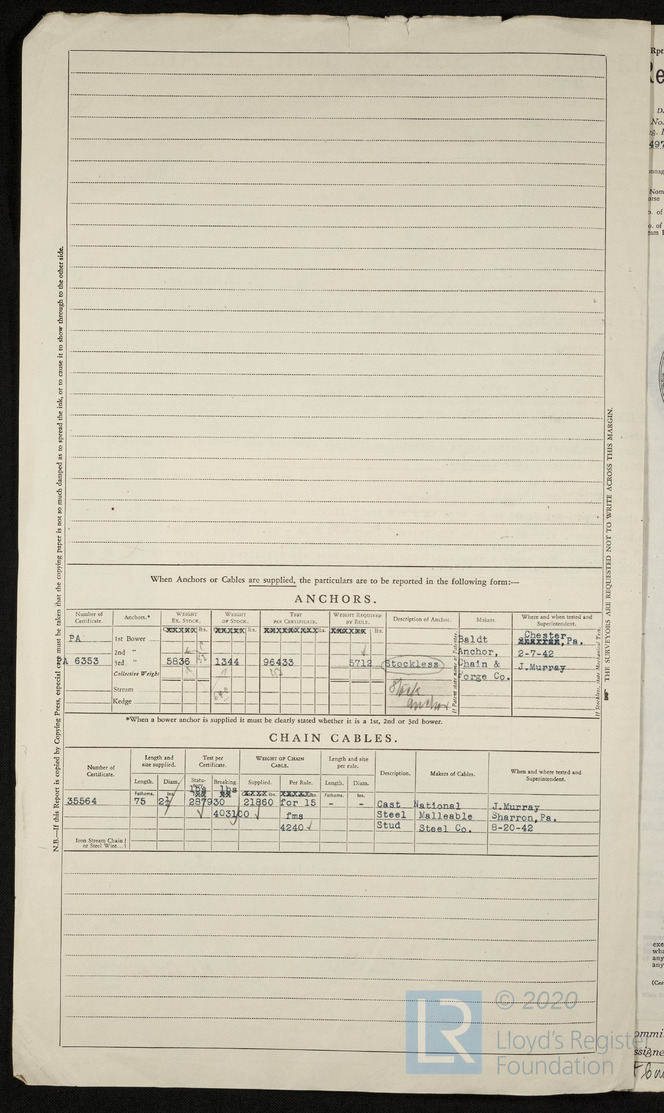 When Anchors or Cables are supplied, the particulars are to be reported in the following form:—
ANCHORS.
Number of Certificate. Anchors.* Weight Ex. Stock. Weight of Stock. Test per Certificate. Weight Required by Rule. Description of Anchor. Makers. Where and when tested and Superintendent.
lbs. lbs. lbs. lbs.
PA 1st Bower Baldt Chester, Pa.
2nd " Anchor, 2-7-42
PA 6353 3rd " 5836 1344 96433 5712 Stockless Chain & J.Murray
Collective Weight Forge Co.
Stream Stock
Kedge anchor
*When a bower anchor is supplied it must be clearly stated whether it is a 1st, 2nd or 3rd bower.
CHAIN CABLES.
Number of Certificate. Length and size supplied. Test per Certificate. Weight of Chain Cable. Length and size per rule. Description. Makers of Cables. When and where tested and Superintendent.
Length. Diam. Statu- Breaking. Supplied. Per Rule. Length. Diam.
Fathoms. Ins. lbs lbs lbs. lbs. Fathoms. Ins.
35564 75 287930 21860 for 15 - - Cast National J.Murray
403100 fms Steel Malleable Sharron, Pa.
4240 Stud Steel Co. 8-20-42
Iron Stream Chain or Steel Wire...
N.B.—If this Report is copied by Copying Press, especial care must be taken that the copying paper is not so much damped as to spread the ink, or to cause it to show through to the other side.
THE SURVEYORS ARE REQUESTED NOT TO WRITE ACROSS THIS MARGIN.
LR
© 2020
Lloyd's Register
Foundation